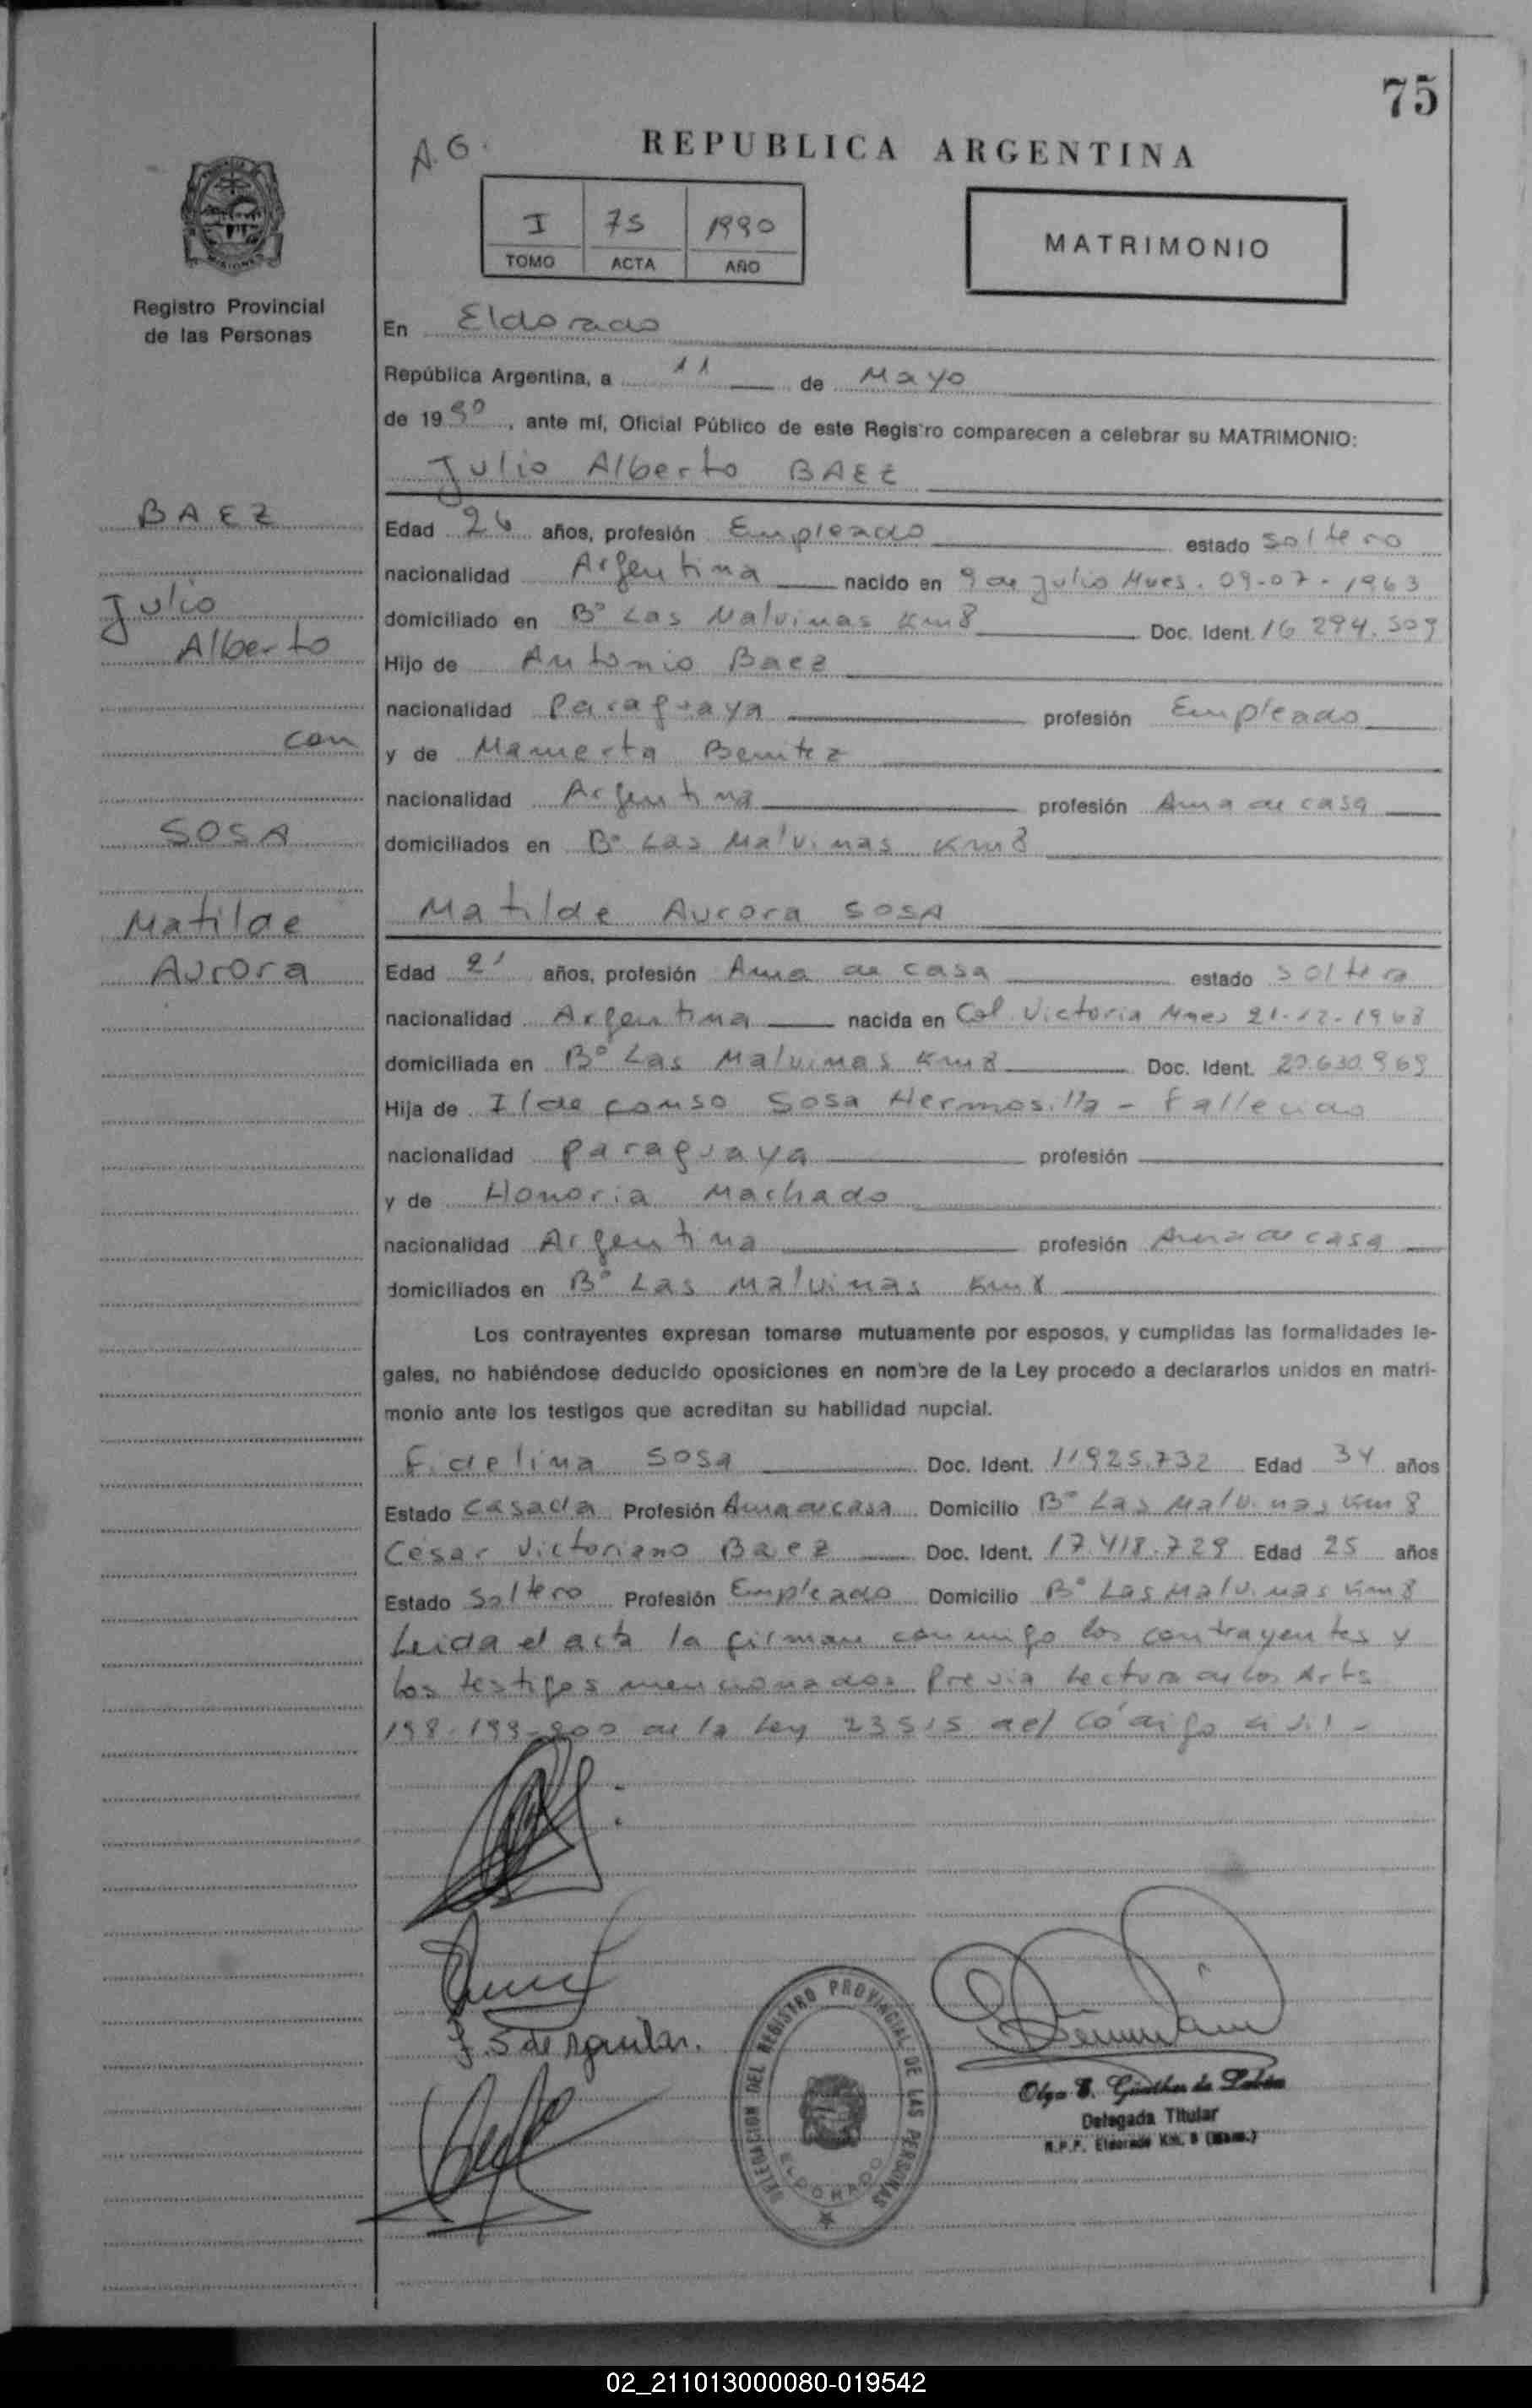 75
A.G.
REPUBLICA ARGENTINA
I 75 1990
TOMO ACTA AÑO
MATRIMONIO
Registro Provincial
de las Personas
En Eldorado
República Argentina, a 11 de Mayo
de 1990, ante mí, Oficial Público de este Registro comparecen a celebrar su MATRIMONIO:
Julio Alberto BAEZ
BAEZ
Julio
Alberto
con
SOSA
Matilde
Aurora
Edad 26 años, profesión Empleado estado soltero
nacionalidad Argentina nacido en 9 de Julio Mnes. 09-07-1963
domiciliado en B° Las Malvinas Km8 Doc. Ident. 16 294.509
Hijo de Antonio Baez
nacionalidad Paraguaya profesión Empleado
y de Mamerta Benitez
nacionalidad Argentina profesión Ama de casa
domiciliados en B° Las Malvinas Km8
Matilde Aurora SOSA
Edad 21 años, profesión Ama de casa estado soltera
nacionalidad Argentina nacida en Col. Victoria Mnes 21-12-1968
domiciliada en B° Las Malvinas Km8 Doc. Ident. 20.630.969
Hija de Ildefonso Sosa Hermosilla - Fallecido
nacionalidad Paraguaya profesión
y de Honoria Machado
nacionalidad Argentina profesión Ama de casa
domiciliados en B° Las Malvinas Km8
Los contrayentes expresan tomarse mutuamente por esposos, y cumplidas las formalidades le-
gales, no habiéndose deducido oposiciones en nombre de la Ley procedo a declararlos unidos en matri-
monio ante los testigos que acreditan su habilidad nupcial.
Fidelina Sosa Doc. Ident. 11925.732 Edad 34 años
Estado Casada Profesión Ama de casa Domicilio B° Las Malvinas Km 8
Cesar Victoriano Baez Doc. Ident. 17.418.729 Edad 25 años
Estado Soltero Profesión Empleado Domicilio B° Las Malvinas Km 8
Leida el acta la firman conmigo los contrayentes y
los testigos mencionados Previa Lectura de los Arts
198-199-200 de la Ley 23515 del Código Civil-
F. S de Aguilar.
DELEGACION DEL REGISTRO PROVINCIAL DE LAS PERSONAS
ELDORADO
Delegada Titular
R.P.P. Eldorado Km. 8 (Mnes.)
02_211013000080-019542